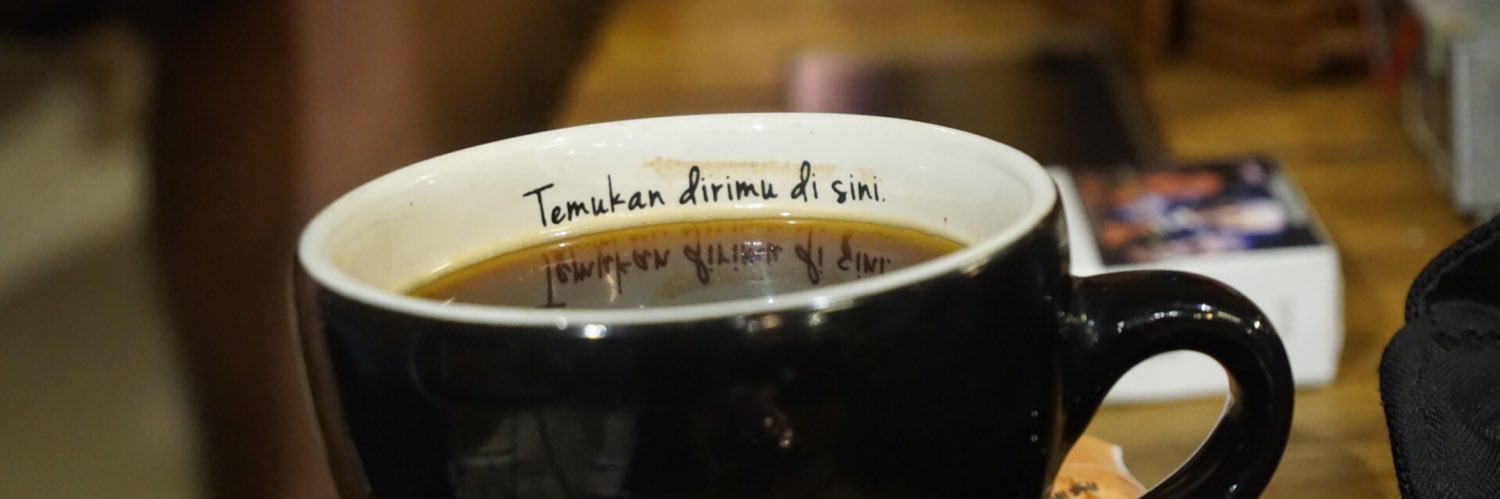 Temukan dirimu di sini.